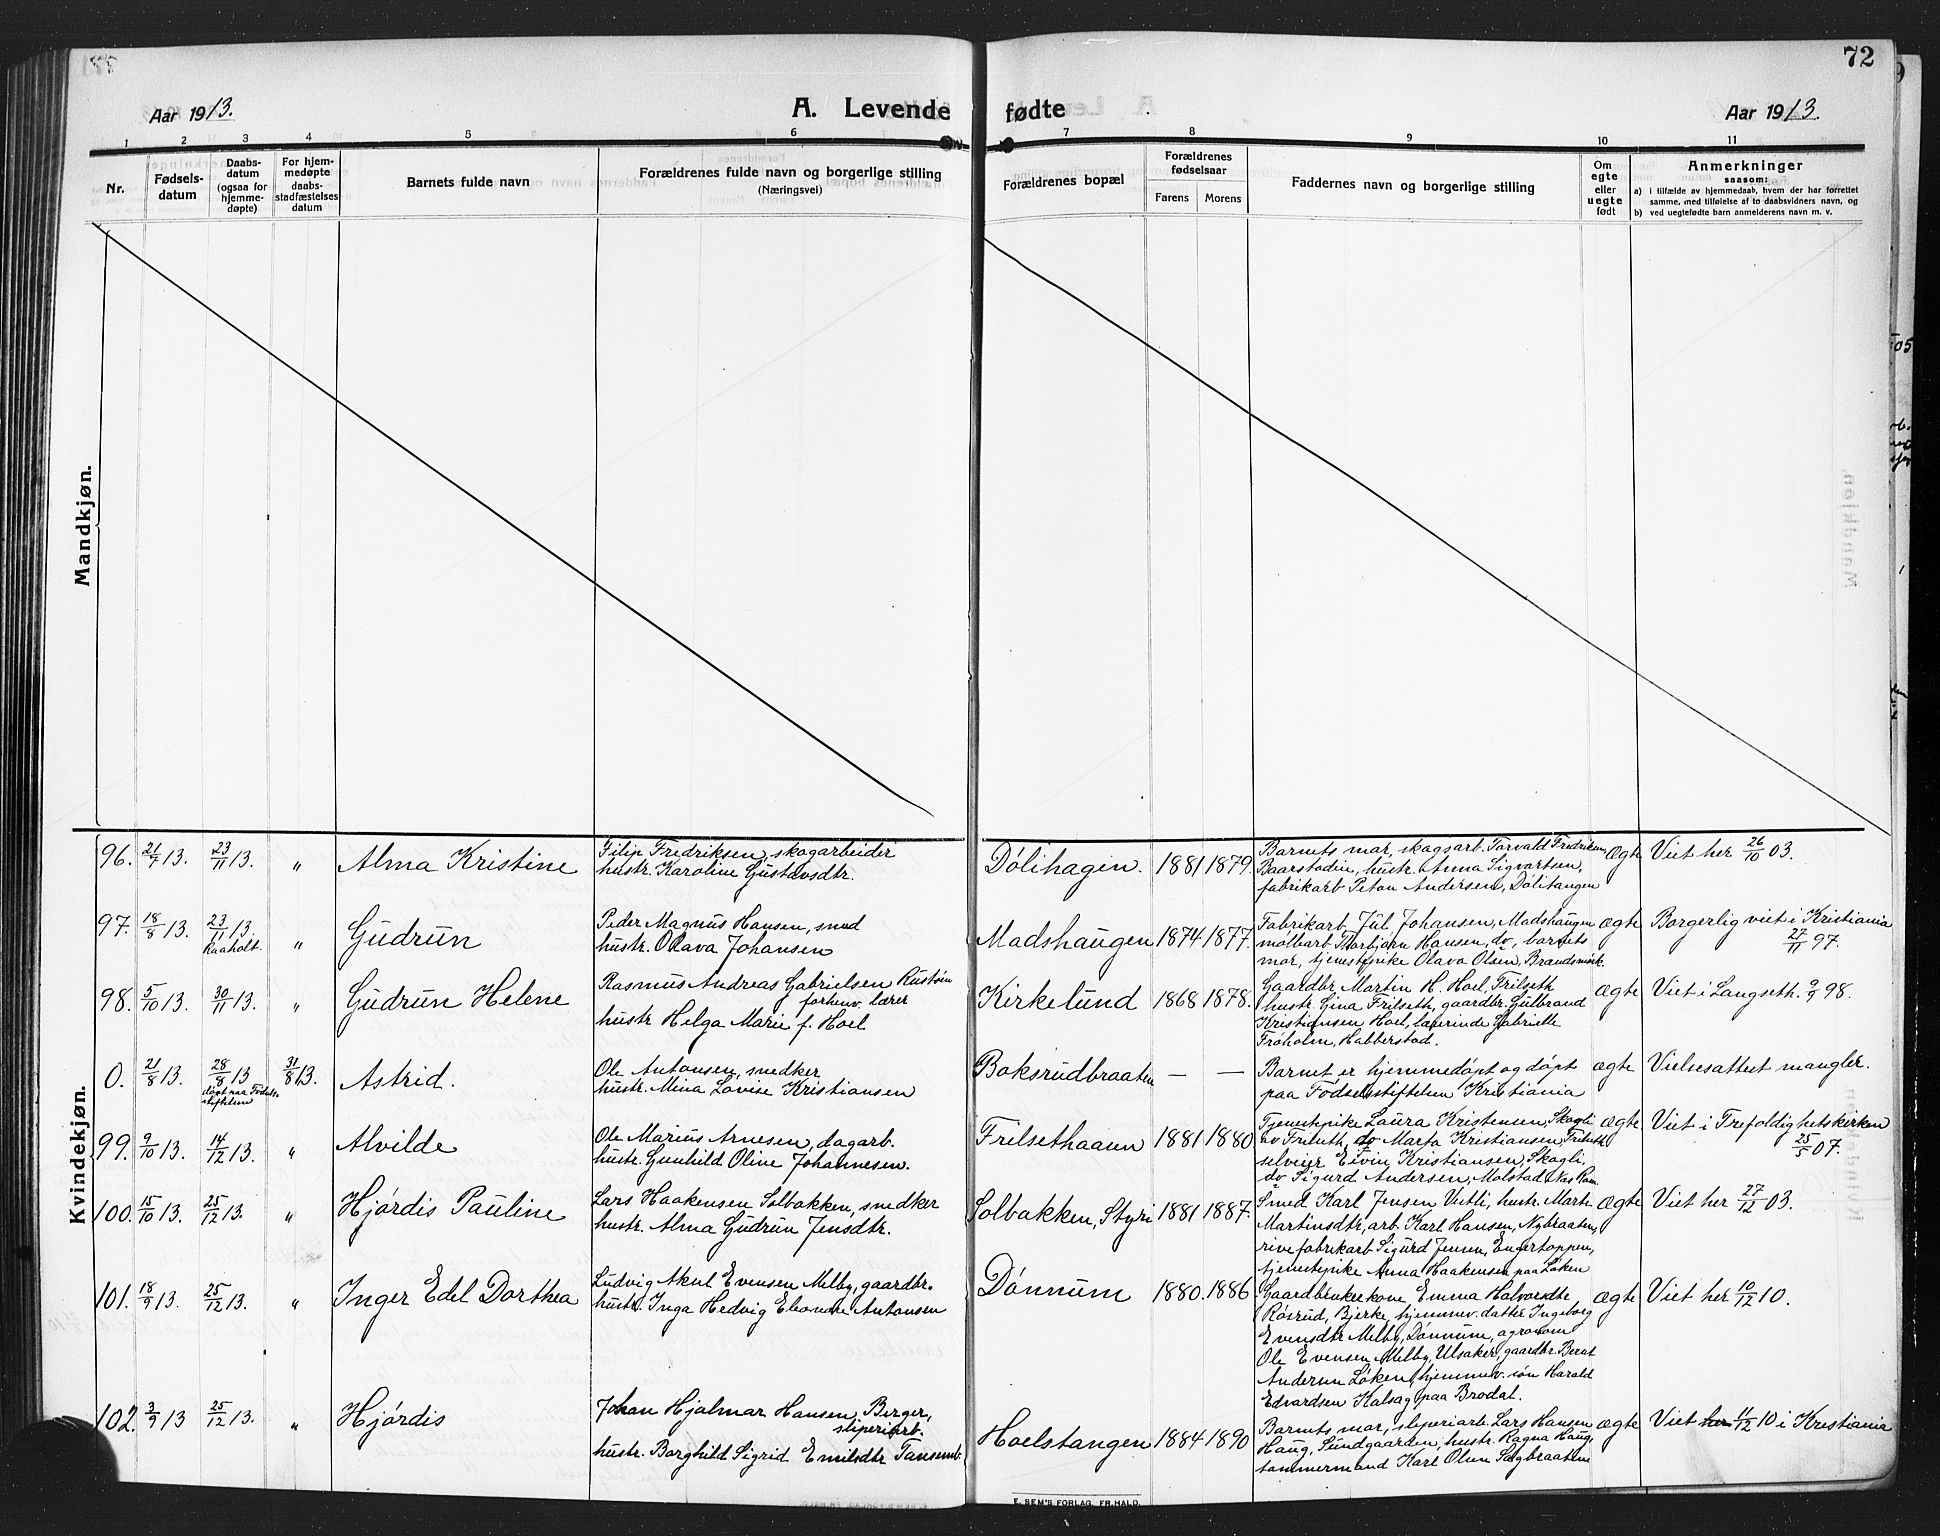 72
Aar 1913.
A. Levende fødte
Aar 1913.
1 2 3 4 5 6 7 8 9 10 11
Nr.
Fødsels-
datum
Daabs-
datum
(ogsaa for
hjemme-
døpte)
For hjem-
medøpte
daabs-
stadfæstelses
datum
Barnets fulde navn
Forældrenes fulde navn og borgerlige stilling
(Næringsvei)
Forældrenes bopæl
Forældrenes
fødselsaar
Farens Morens
Faddernes navn og borgerlige stilling
Om
egte
eller
uegte
født
Anmerkninger
saasom:
a) i tilfælde av hjemmedaab, hvem der har forrettet
samme, med tilføielse af to daabsvidners navn, og
b) ved uegtefødte barn anmelderens navn m. v.
Mandkjøn.
Kvindekjøn.
96. 21/9 13. 23/11 13. " Alma Kristine
Filip Fredriksen, skogarbeider
hustr. Karoline Gustavsdtr.
Dølihagen. 1881 1879.
Barnets mor, skogsarb. Torvald Fredriksen
Baarstadin, hustr. Anna Sigvartsen,
fabrikarb Peton Andersen, Dølitangen
ægte Viet her 26/10 03.
97. 18/8 13. 23/11 13. Raaholt. " Gudrun
Peder Magnus Hansen, smed
hustr. Olava Johansen
Madshaugen 1874 1877.
Fabrikarb. Jul. Johansen, Madshaugen
mølarb Thorbjørn Hansen, do, barnets
mor, tjenestepike Olava Olsen, Brandsmark.
ægte Borgerlig viet i Kristiania
27/11 97.
98. 5/10 13. 30/11 13. " Gudrun Helene
Rasmus Andreas Gabrielsen Rustøen
forhenv. lærer
hustr Helga Marie f. Hoel
Kirkelund 1868 1878.
Gaardbr. Martin H. Hoel, Frilseth
hustr. Gina Frilseth, gaardbr. Gulbrand
Kristiansen Hoel, lærerinde Gabrielle
Frøholm, Habberstad.
ægte Viet i Langseth. 9/9 98.
0. 21/8 13. 28/8 13 31/8 13. Astrid.
døpt paa Fødsels-
stiftelsen
Ole Antonsen, snedker
hustr. Mina Lovise Kristiansen
Boksrudbraaten — —
Barnet er hjemmedøpt og døpt
paa Fødselsstiftelsen Kristiania
ægte Vielsesattest mangler.
99. 9/10 13. 14/12 13. " Alvilde
Ole Marius Arnesen, dagarb.
hustr. Gunhild Oline Johannesen.
Frilsethaaen 1881 1880
Tjenestepike Laura Kristensen, Skogli
av Frilseth, do Marta Kristiansen, Frilseth
selveier Eivin Kristiansen, Skogli,
do Sigurd Andersen, Molstad, Nas Rom.
ægte Viet i Trefoldighetskirken
25/5 07.
100. 15/10 13. 25/12 13. " Hjørdis Pauline
Lars Haakensen Solbakken, snedker
hustr. Alma Gudrun Jensdtr.
Solbakken, Styri 1881 1887.
Smed Karl Jensen Vestli, hustr. Marte
Martinsdtr, arb. Karl Hansen, Nybraaten,
rivefabrikarb Sigurd Jensen, Engertoppen,
tjenestepike Anna Haakensen paa Løken
ægte Viet her 27/12 03.
101. 18/9 13. 25/12 13. " Inger Edel Dorthea
Ludvig Akul Evensen Melby, gaardbr.
hustr. Inga Hedvig Eleonore Antonsen
Dønnum 1880. 1886
Gaardbrukerkone Emma Halvorsdtr
Røsrud, Bjerke, hjemmev. datter Ingeborg
Evensdtr Melby, Dønnum, agronom
Ole Evensen Melby, Ulsaker, gaardbr. Bernt
Andersen Løken, hjemmev. søn Harald
Edvardsen Kalsag paa Brodal.
ægte Viet her 10/12 10.
102. 3/9 13 25/12 13. " Hjørdis
Johan Hjalmar Hansen, Berger,
sliperiarb.
hustr. Borghild Sigrid Emilsdtr Tansemb.
Hoelstangen 1884 1890
Barnets mor, sliperiarb. Lars Hansen
Haug, Sundgaarden, hustr. Ragna Haug,
tømmermand Karl Olsen Sagbraaten
ægte Viet her 11/12 10 i Kristiania
E. SEM'S FORLAG, FR.HALD.